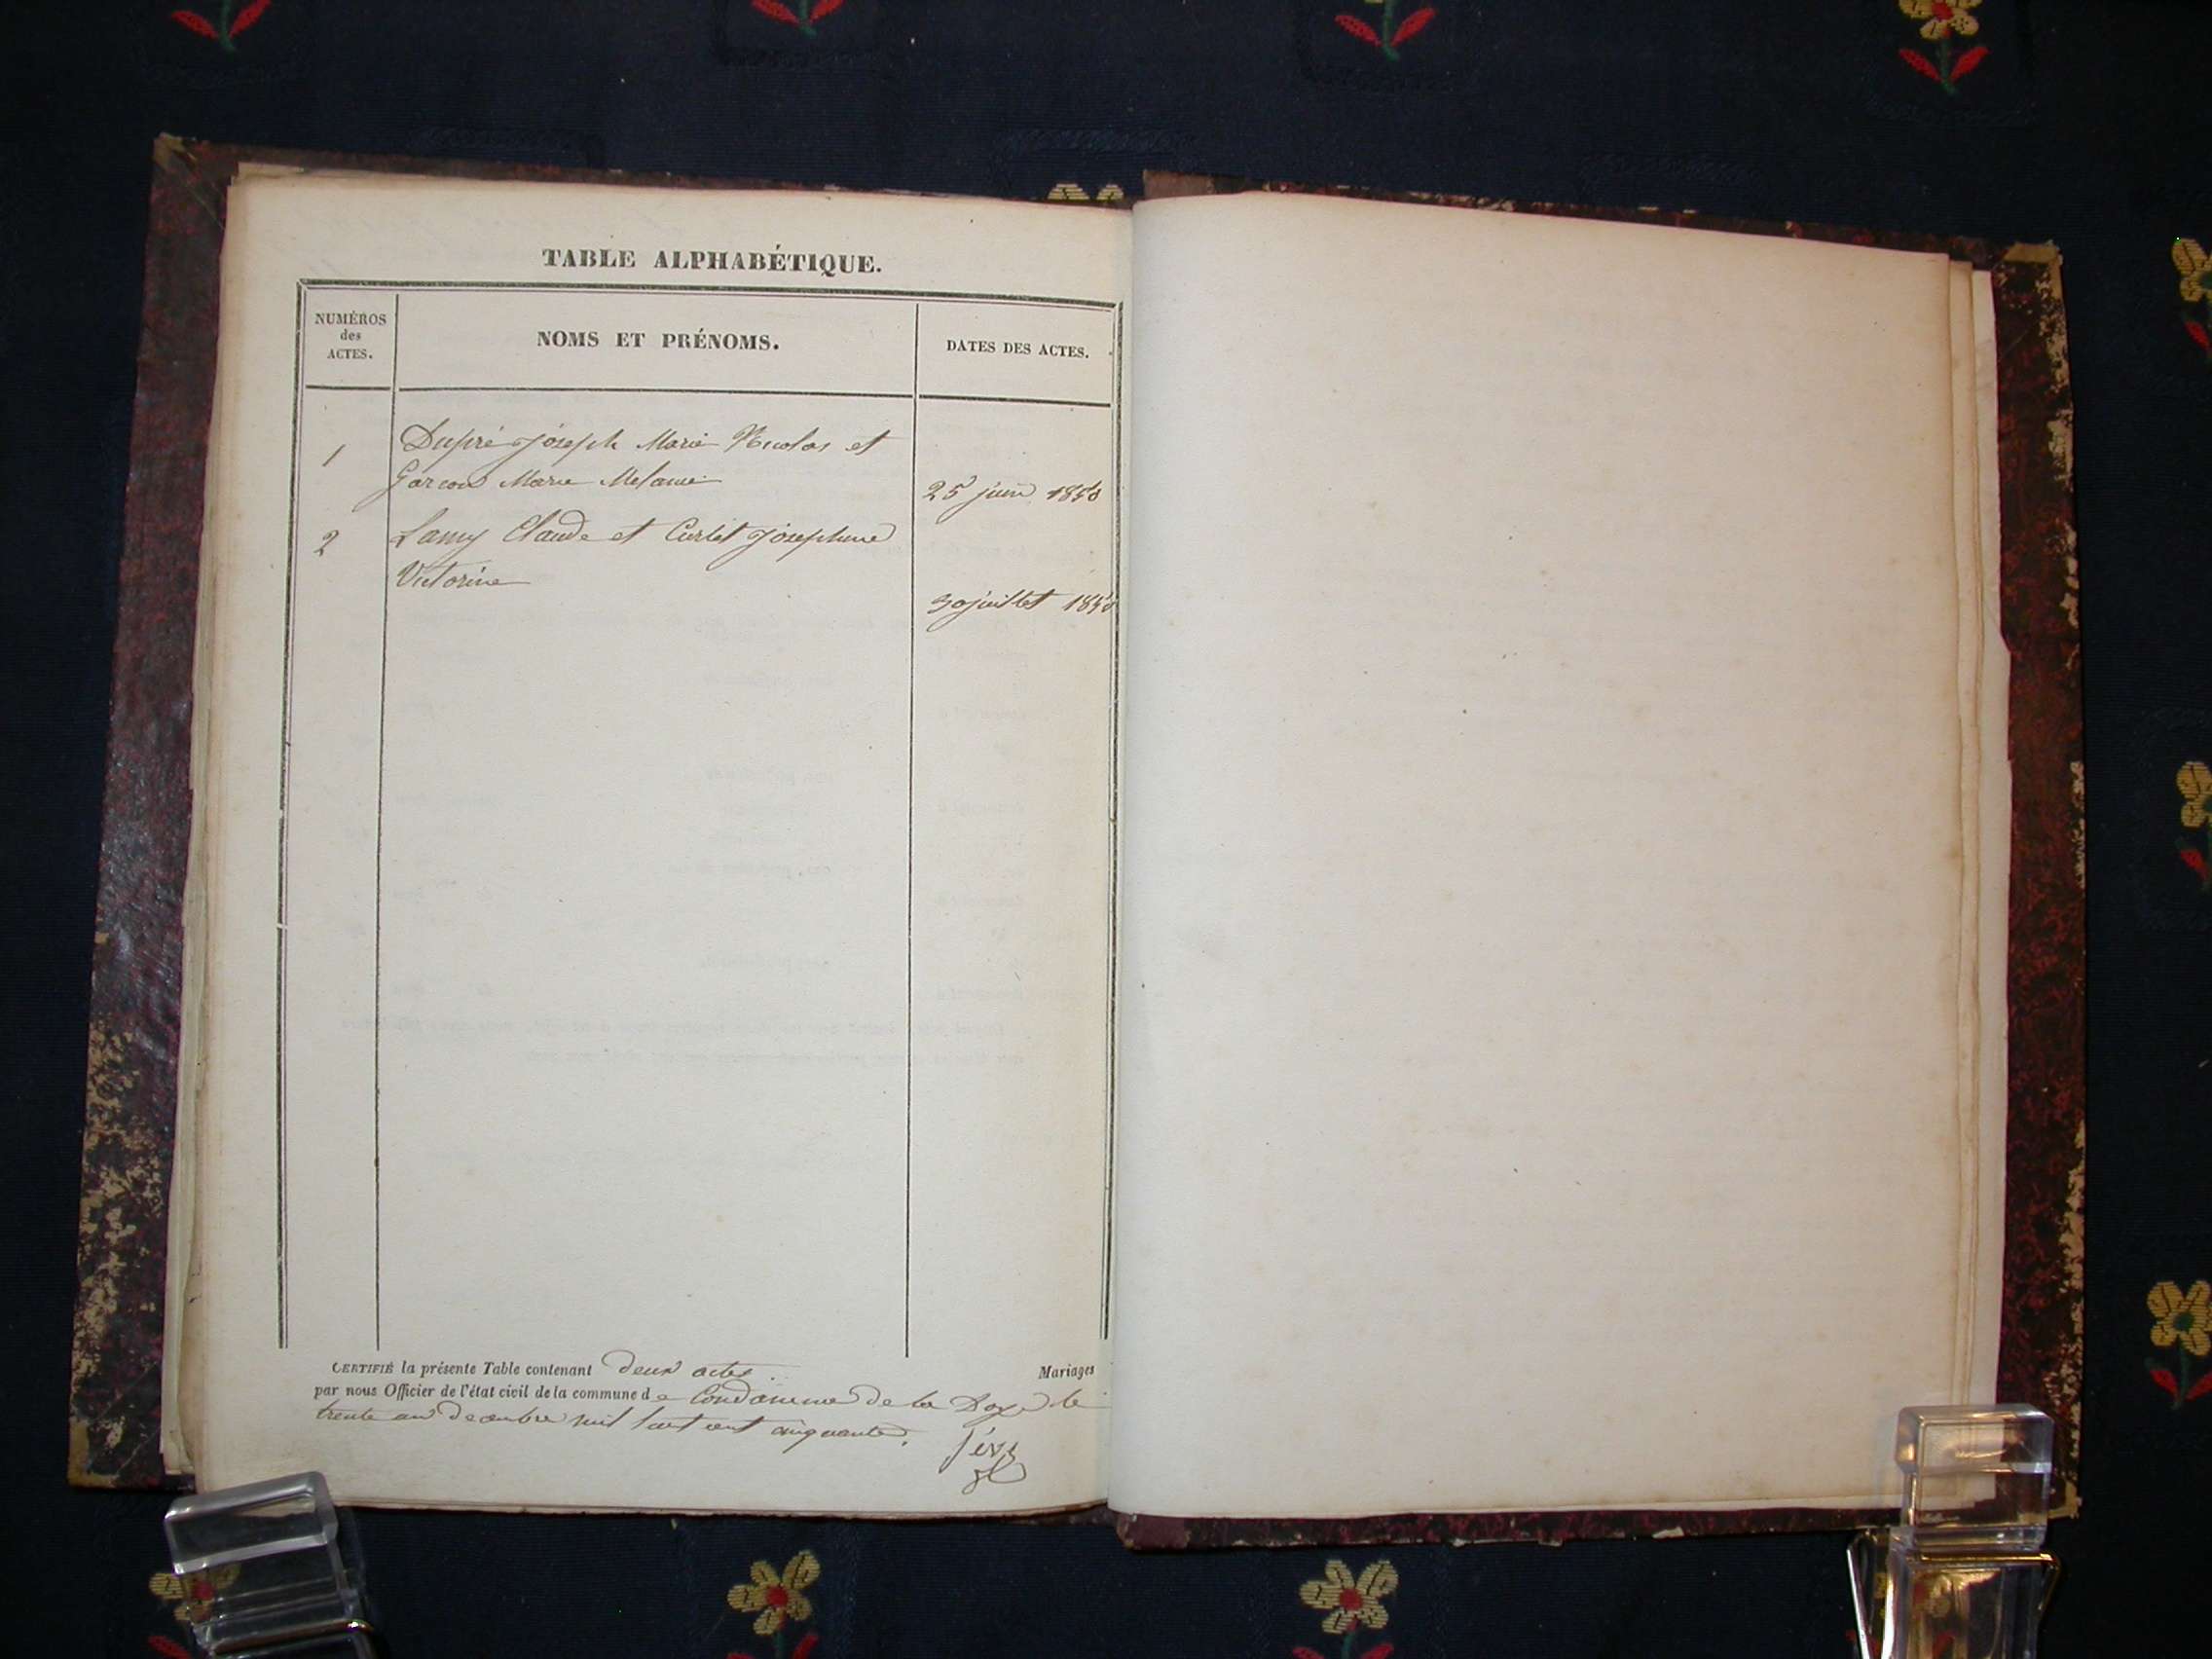 TABLE ALPHABÉTIQUE.
NUMÉROS
des
ACTES.
NOMS ET PRÉNOMS.
DATES DES ACTES.
1
Dupré Joseph Marie Nicolas et
Garcon Marie Melanie
25 juin 1850
2
Lamy Claude et Curlet Josephine
Victorine
30 juillet 1850
CERTIFIÉ la présente Table contenant deux actes Mariages
par nous Officier de l'état civil de la commune de Condamine de la Doye le
trente un Decembre mil huit cent cinquante.